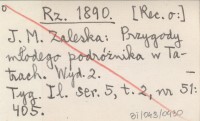 Rz. 1890. [Rec. o:]
J. M. Zaleska: Przygody
młodego podróżnika w Ta-
trach. Wyd. 2. —
Tyg. Il. ser. 5, t. 2, nr 51:
405.